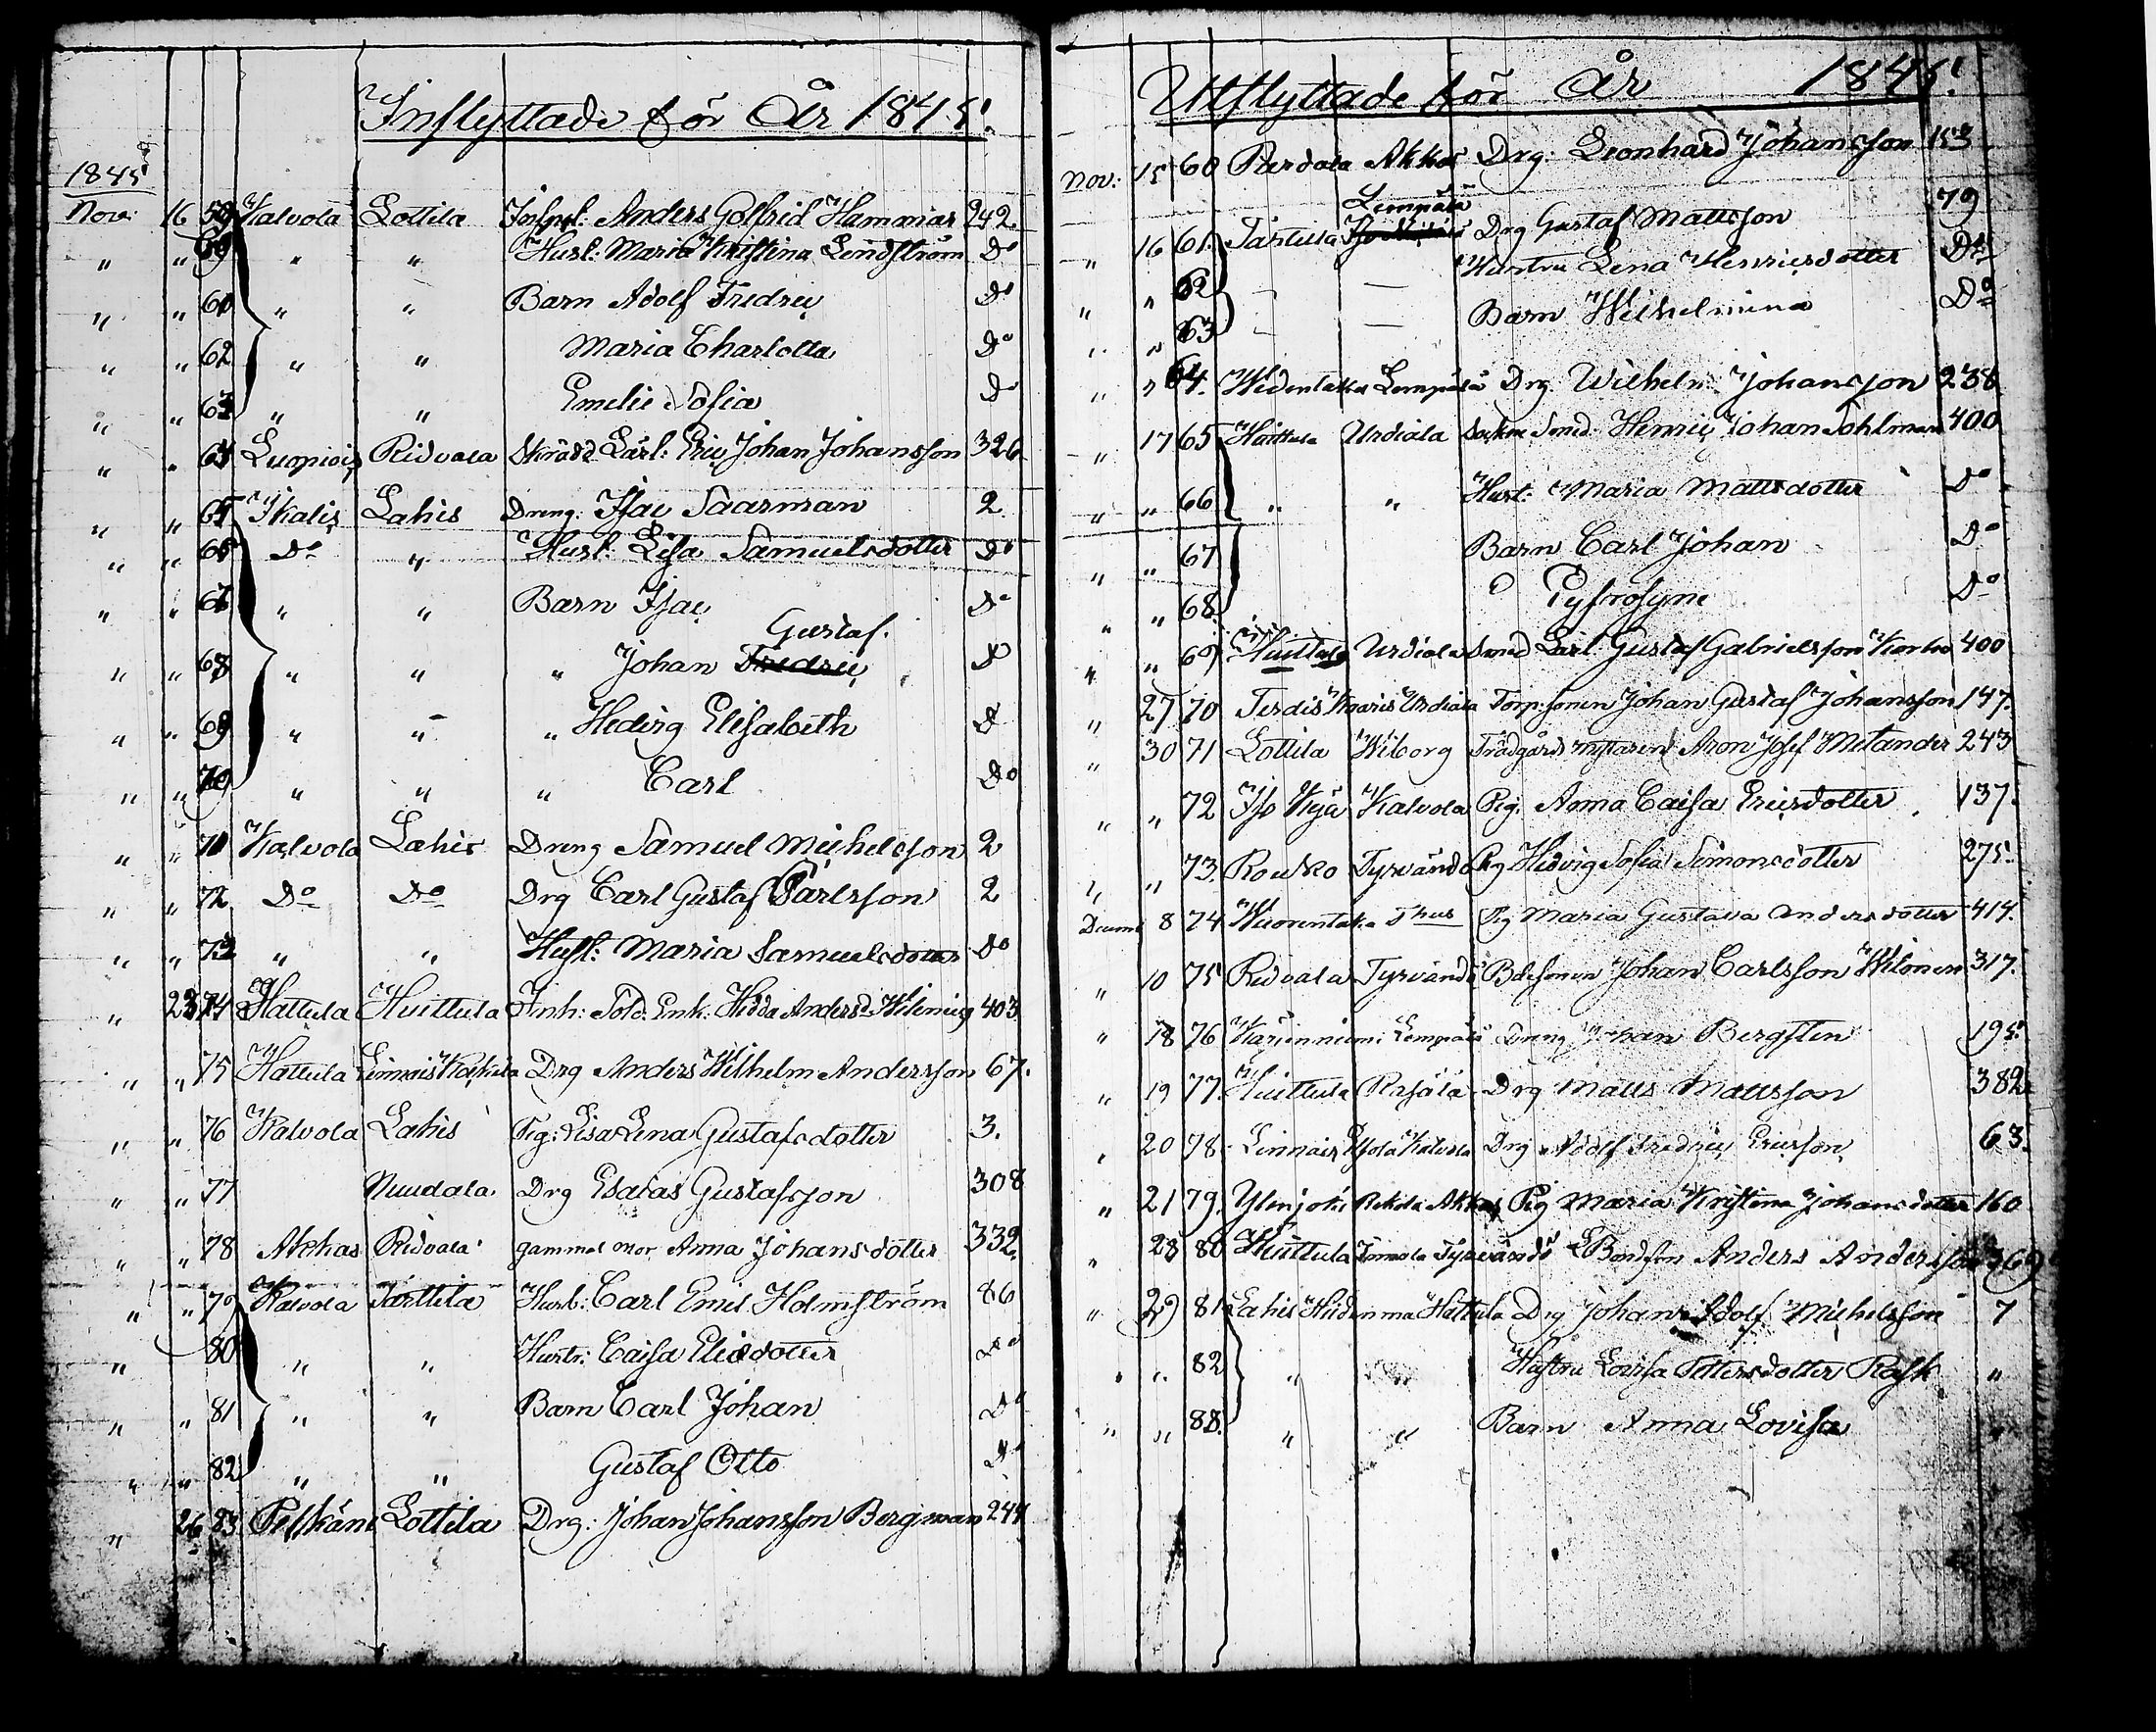 Inflyttade för År 1845.
1845
Nov: 16 59 Kalvola Lottila Inspet: Anders Golfrid Hammar 242
" " 60 " " Hust: Maria Kristina Lindström Do
" " 61 " " Barn Adolf Fredric Do
" " 62 " " Maria Charlotta Do
" " 63 " " Emelie Sofia Do
" " 64 Luopiois Ridvala Skrädd. Lärl: Eric Johan Johansson 326
" " 65 Ikalis Lahis Dreng: Isac Saarman 2
" " 66 Do " Hust: Lisa Samuelsdotter Do
" " 67 " " Barn Isac Do
Gustaf.
" " 68 " " " Johan Fredric Do
" " 69 " " " Hedvig Elisabeth D
" " 70 " " " Carl Do
" " 71 Kalvola Lahis Dreng Samuel Michelsson 2
" " 72 Do Do Drg Carl Gustaf Carlsson 2
" " 73 " " Hust: Maria Samuelsdotter Do
" 23 74 Hattula Huittula Inh: Sold. Enk: Hedda Andersd. 403
" " 75 Hattula Linnais Drg Anders Wilhelm Andersson 67.
" " 76 Kalvola Lahis Pig: Lisa Lena Gustafsdotter 3.
" " 77 Nuudala Drg Esaias Gustafsson 308
" " 78 Akkas Ridvala gammel mor Anna Johansdotter 332
" " 79 Kalvola Tarttila Husb: Carl Emil Holmström 86
" 80 " " Hustr: Caisa Elisdotter Do
" " 81 " " Barn Carl Johan Do
" " 82 " " Gustaf Otto Do
" 26 83 Pelkäne Lottila Drg: Johan Johansson Bergman 244
Utflyttade för År 1845.
Nov: 15 60 Perdola Akkas Drg: Leonhard Johansson 153
Lempälä
" 16 61 Tarttila Drg Gustaf Mattsson 79
" " 62 — — Hustru Lena Henricsdotter Do
" " 63 — — Barn Wilhelmina Do
" " 64. Lempälä Drg Wilhelm Johansson 238
" 17 65 Huittula Urdiala Sochne Smed Henric Johan Tohlman 400
" " 66 " " Hust: Maria Mattsdotter Do
" " 67 Barn Carl Johan Do
" " 68 Do
" " 69 Huittula Urdiala Smed Lärl: Gustaf Gabrielsson 400
" 27 70 Urdiala Torp: sonen Johan Gustaf Johansson 147.
" 30 71 Lottila Wiborg Trädgårds mästaren Aron Josef Melander 243
" " 72 Kalvola Pig. Anna Caisa Ericsdotter 137.
" " 73. Roukko Tyrvändö Pig Hedvig Sofia Simonsdotter 275.
Decemb 8 74 Wuorentaka Thus Pig Maria Gustava Andersdotter 414.
" 10 75 Ridvala Tyrvändö Johan Carlsson 317.
" 18 76 Karjenniemi Lempälä Dreng Johan Bergsten 195.
" 19 77. Huittula Drg Matts Mattsson 382
" 20 78. Linnais Kalvola Drg Adolf Fredric Ericsson 63.
" 21 79. Ylenjoki Rekola Akkas Pig Maria Kristina Johansdotter 160
" 28 80 Huittula Tyrvändö Bondson Anders Andersson 369
" 29 81 Lahis Hattula Drg Johan Adolf Michelsson 7
" " 82 " " Hustru Lovisa Pettersdotter Rask "
" " 83. " " Barn Anna Lovisa "